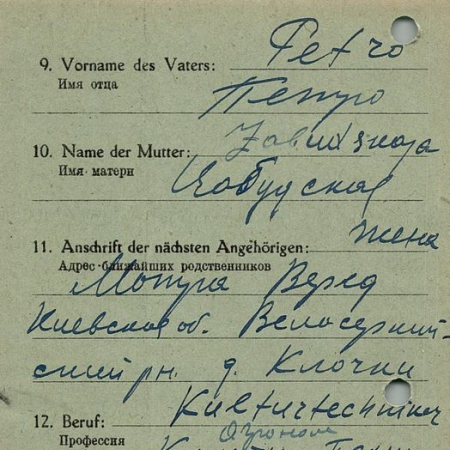 Petro
9. Vorname des Vaters:
Имя отца
Петро
10. Name der Mutter:
Имя матери
жена
11. Anschrift der nächsten Angehörigen:
Адрес ближайших родственников
Мотря Веред
Киевская об. Велосерний-
ский рн. д. Клочки
Kulturtechniker
12. Beruf:
Агроном
Профессия